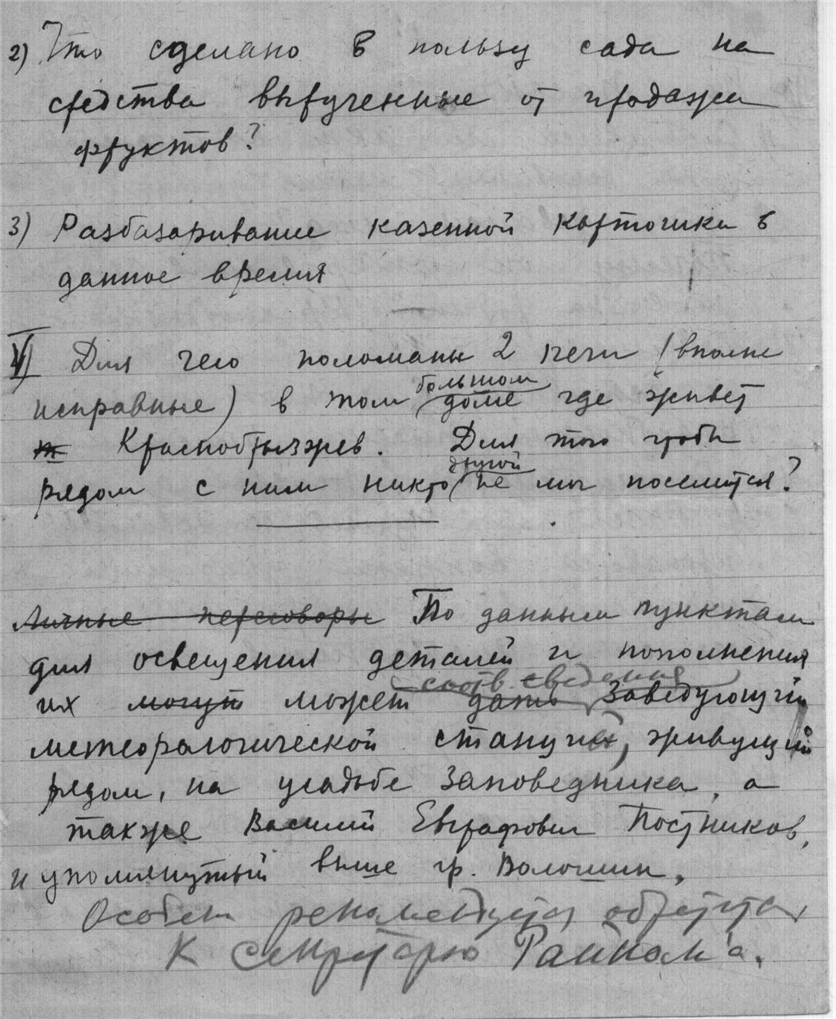 2) Что сделано в пользу сада на
средства вырученные от продажи
фруктов?
3) Разбазаривание казенной картошки в
данное время
V) Для чего поломаны 2 печи (вполне
исправные) в том большом доме где живет
Краснобрыжев. Для того чтобы
рядом с ним никто другой не мог поселится?
Личные переговоры По данным пунктам
для освещения деталей и пополнения
их могут может дать сведения Заведующий
метеорологической станции, живущий
рядом, на усадьбе Заповедника, а
также Василий Евграфович Постников,
и упомянутый выше гр. Волошин.
Особен рекомендуется обратится
к секретарю Райком'а.